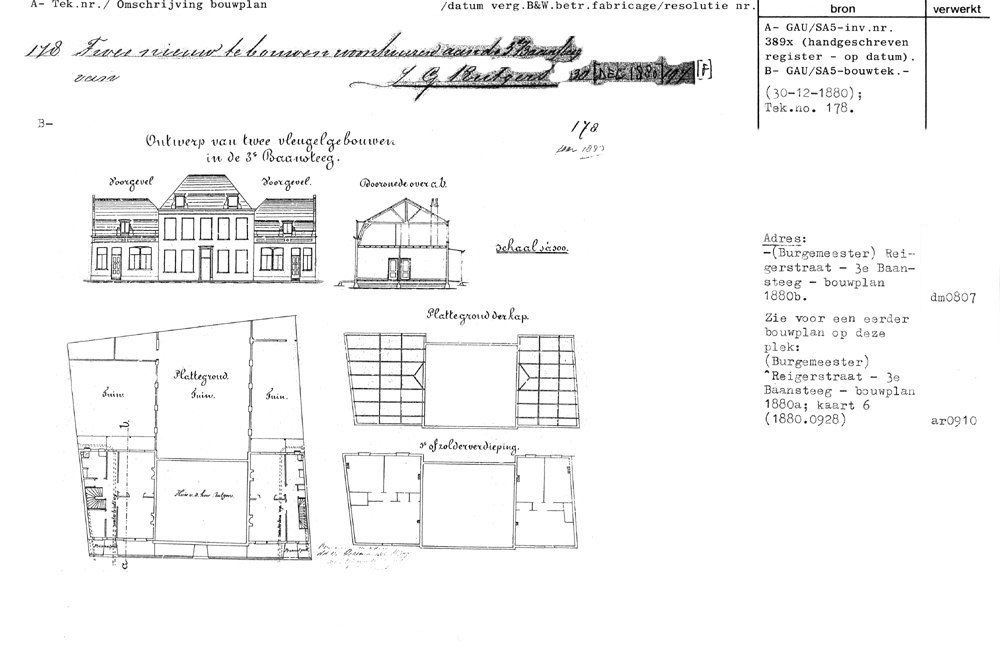 A- Tek.nr./ Omschrijving bouwplan
/datum verg.B&W.betr.fabricage/resolutie nr.
bron
verwerkt
178 Twee nieuw te bouwen woonhuizen aan de 3e Baansteeg
van
30 DEC 1880
A- GAU/SA5-inv.nr.
389x (handgeschreven
register - op datum).
B- GAU/SA5-bouwtek.-
(30-12-1880);
Tek.no. 178.
B-
178
Ontwerp van twee vleugelgebouwen
in de 3e Baansteeg.
Voorgevel
Voorgevel.
Doorsnede over a.b.
schaal à 500.
Adres:
-(Burgemeester) Rei-
gerstraat - 3e Baan-
steeg - bouwplan
1880b.
dm0807
Zie voor een eerder
bouwplan op deze
plek:
(Burgemeester)
^Reigerstraat - 3e
Baansteeg - bouwplan
1880a; kaart 6
(1880.0928)
ar0910
Plattegrond der kap.
Plattegrond.
Tuin.
Tuin.
Tuin.
b
1e of zolderverdieping.
a